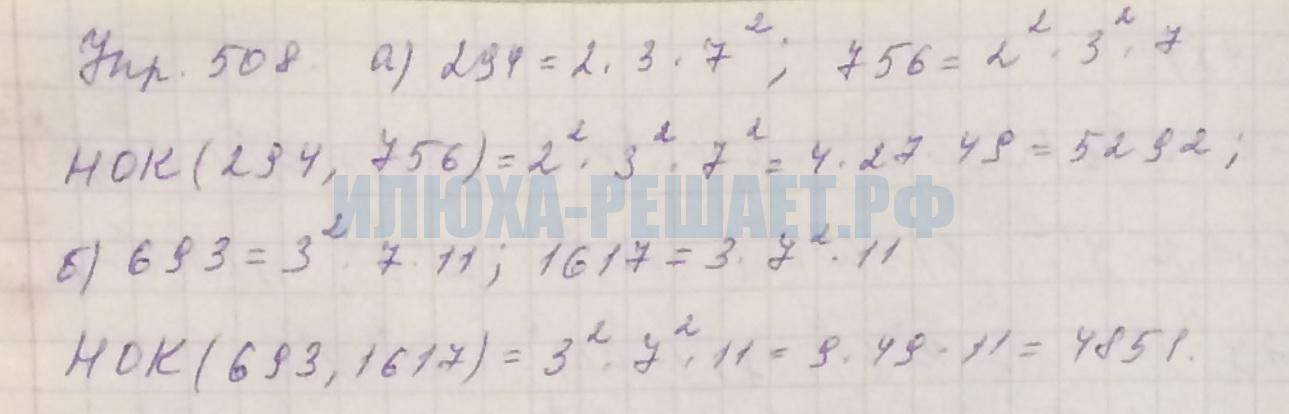 Упр. 508. а) 294 = 2 · 3 · 7²; 756 = 2² · 3² · 7
НОК(294, 756) = 2² · 3² · 7² = 4 · 27 · 49 = 5292;
ИЛЮХА-РЕШАЕТ.РФ
б) 693 = 3² · 7 · 11; 1617 = 3 · 7² · 11
НОК(693, 1617) = 3² · 7² · 11 = 9 · 49 · 11 = 4851.